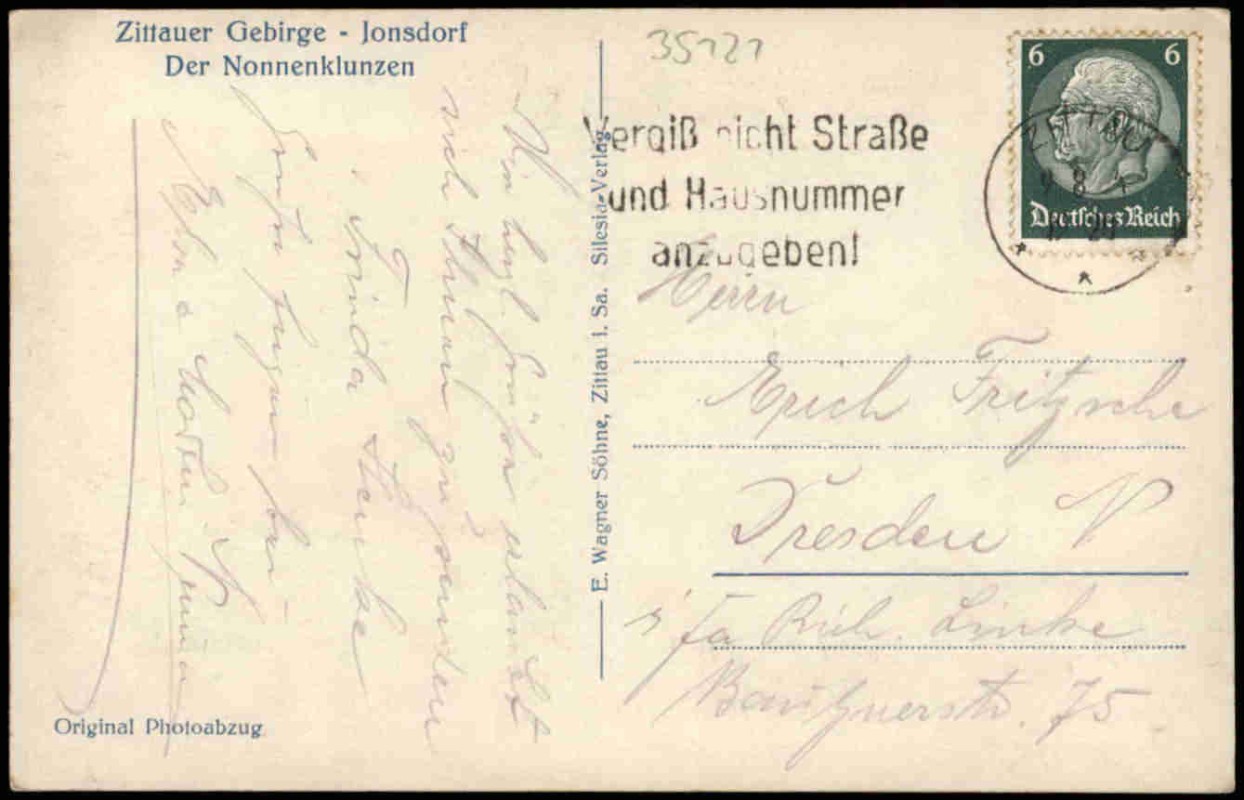 Zittauer Gebirge - Jonsdorf
Der Nonnenklunzen
35121
6 6
Deutsches Reich
ZITTAU
9 8
Vergiß nicht Straße
und Hausnummer
anzugeben!
E. Wagner Söhne, Zittau i. Sa. Silesia-Verlag
erlaubt
sich Ihnen zu senden
Frida
Herrn
Erich Fritzsche
Dresden N
Fa Rich. Linke
Bautznerstr. 75
Original Photoabzug